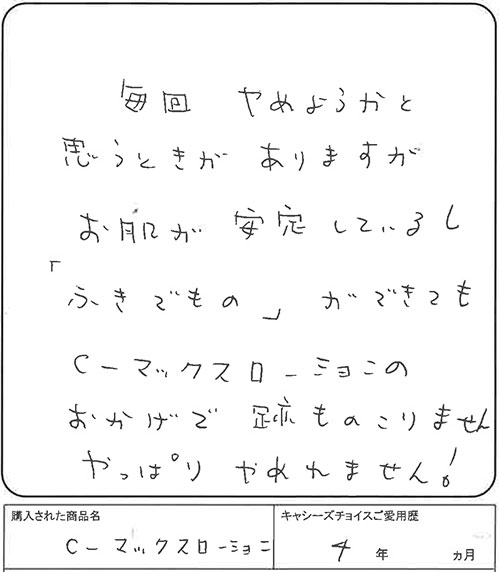 毎回 やめようかと
思うときが ありますが
お肌が 安定しているし
「ふきでもの」ができても
C－マックスローションの
おかげで 跡ものこりません
やっぱり やめれません!
購入された商品名
キャシーズチョイスご愛用歴
C－マックスローション
4 年 ヵ月